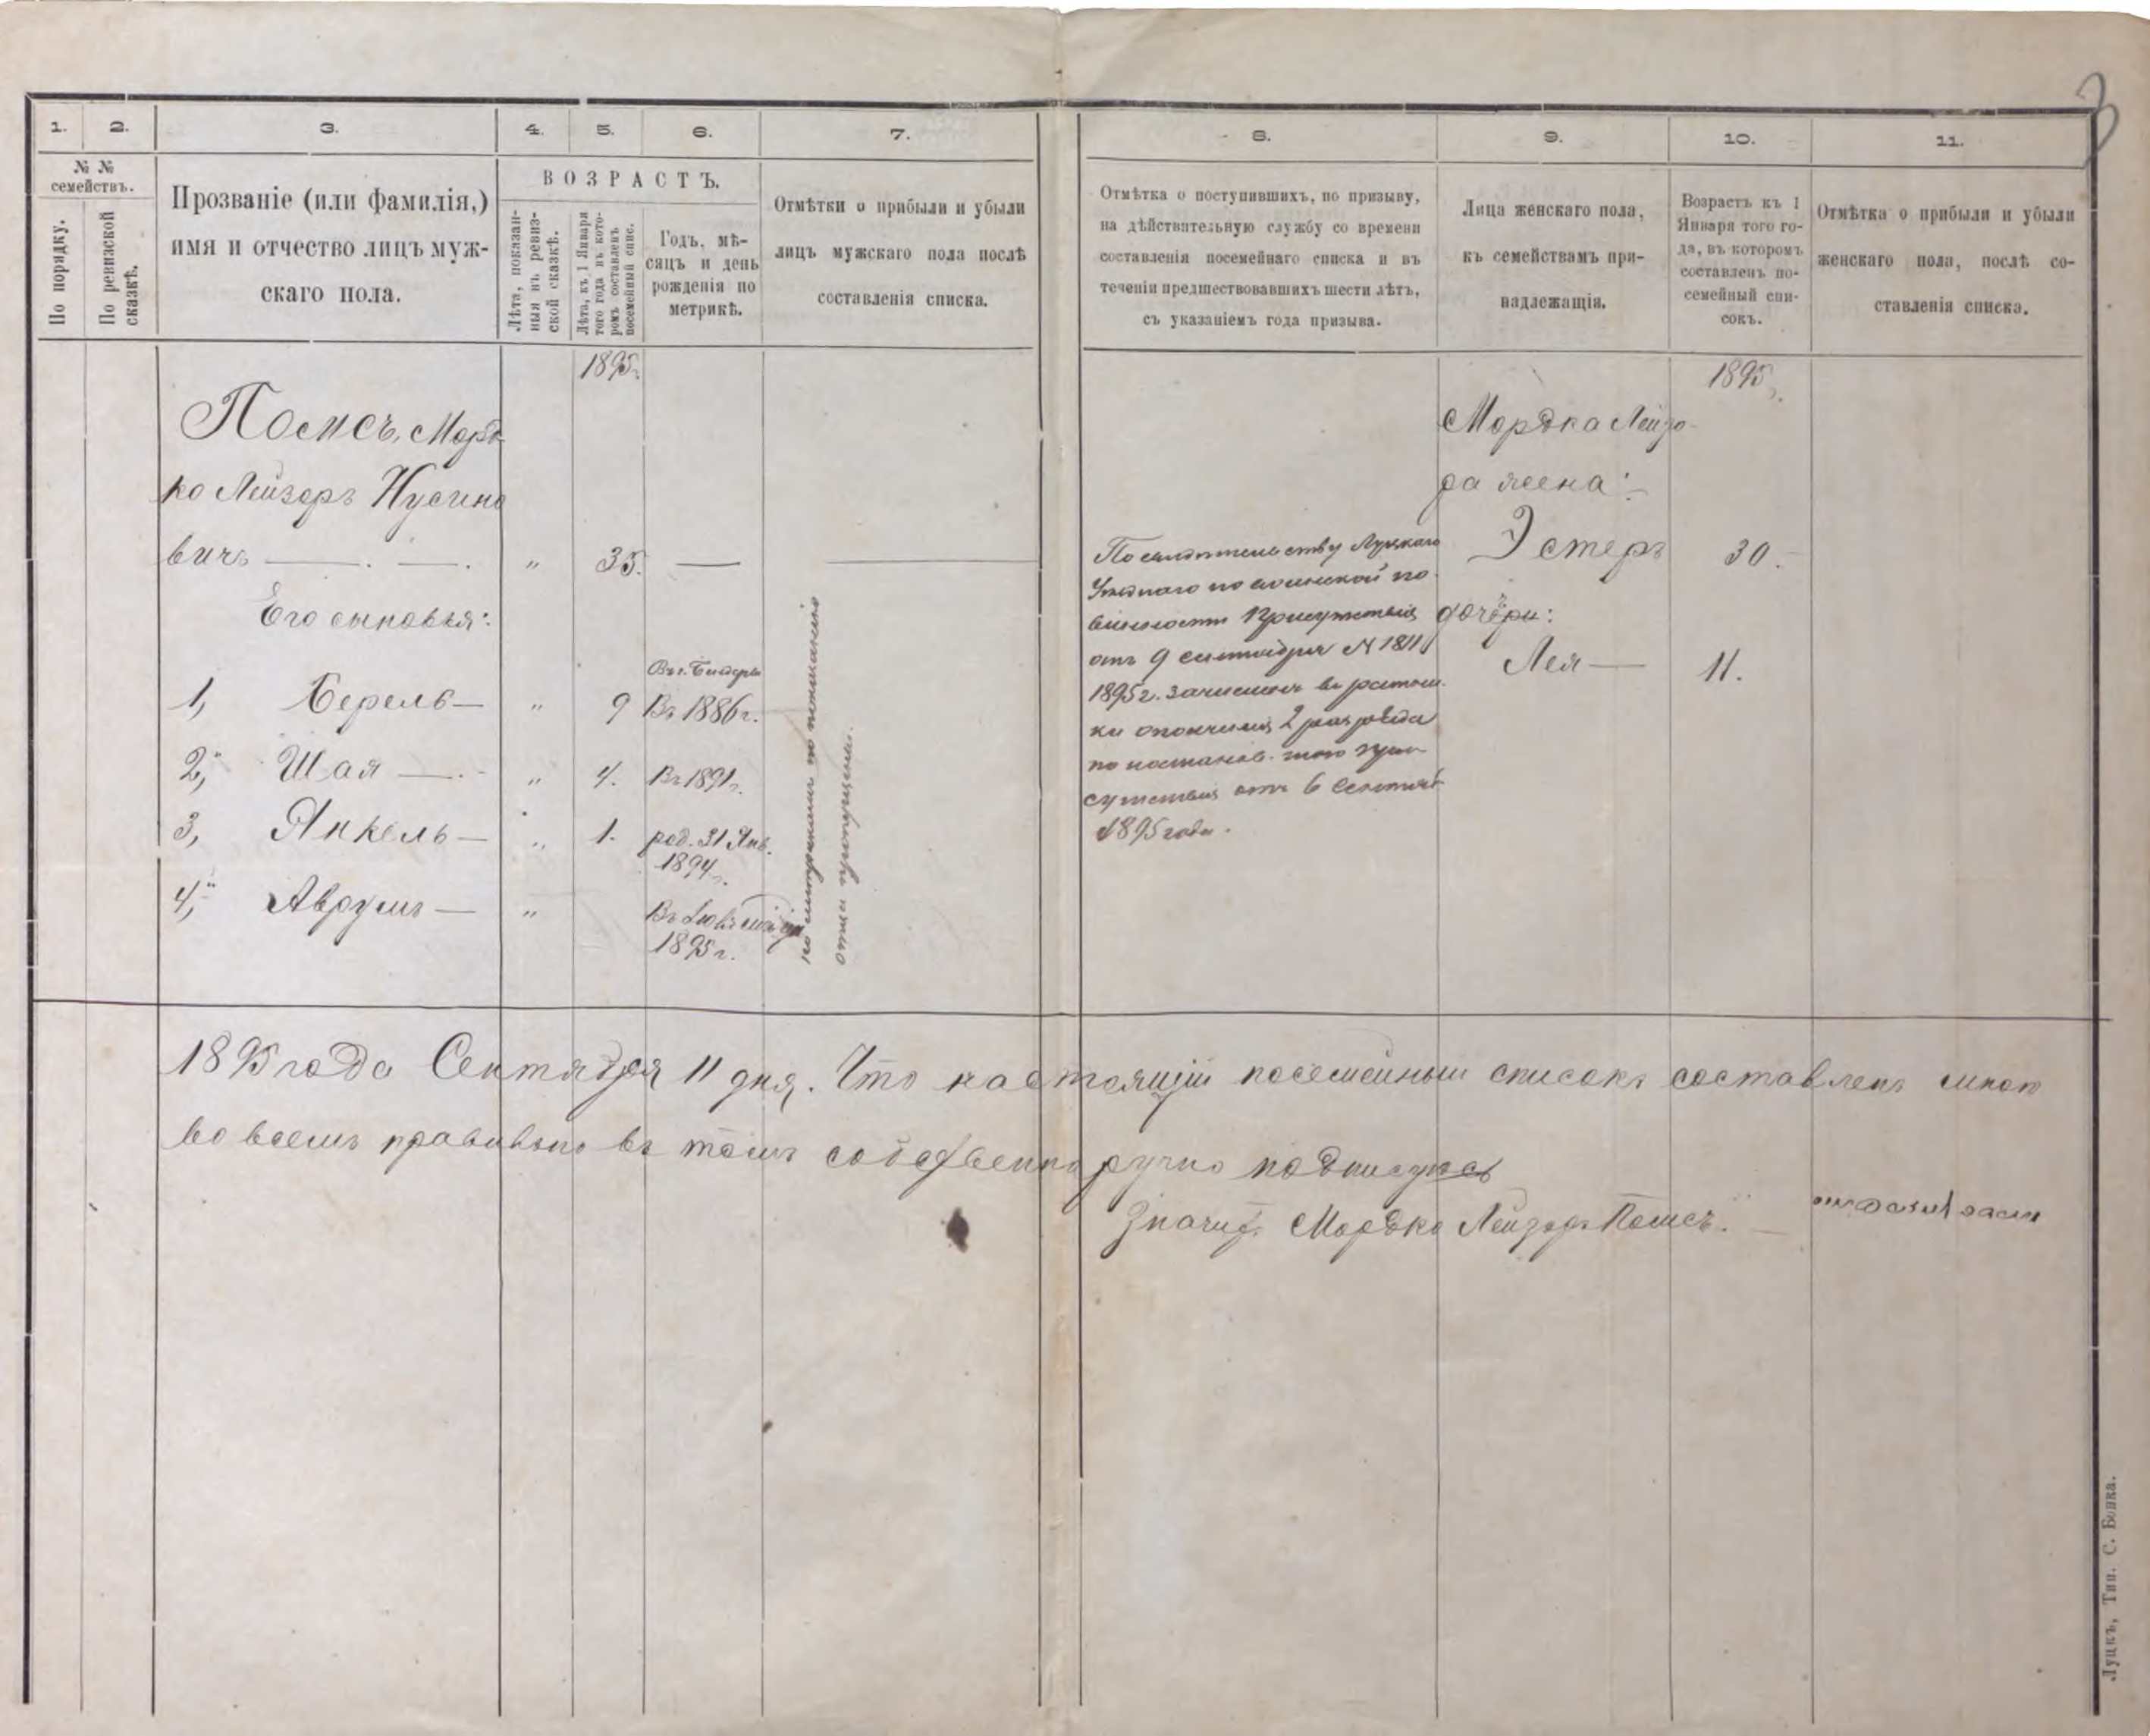 3
1. 2. 3. 4. 5. 6. 7. 8. 9. 10. 11.
№ №
семействъ.
По порядку.
По ревизской
сказкѣ.
Прозваніе (или фамилія,)
имя и отчество лицъ муж-
скаго пола.
ВОЗРАСТЪ.
Лѣта, показан-
ныя въ ревиз-
ской сказкѣ.
Лѣта, къ 1 Января
того года въ кото-
ромъ составленъ
посемейный спис.
Годъ, мѣ-
сяцъ и день
рожденія по
метрикѣ.
Отмѣтки о прибыли и убыли
лицъ мужскаго пола послѣ
составленія списка.
Отмѣтка о поступившихъ, по призыву,
на дѣйствительную службу со времени
составленія посемейнаго списка и въ
теченіи предшествовавшихъ шести лѣтъ,
съ указаніемъ года призыва.
Лица женскаго пола,
къ семействамъ при-
надлежащія.
Возрастъ къ 1
Января того го-
да, въ которомъ
составленъ по-
семейный спи-
сокъ.
Отмѣтка о прибыли и убыли
женскаго пола, послѣ со-
ставленія списка.
1895 г.
Мордъ-
ко Лейзеръ Нусино
вичъ — . — . " 35. —
Его сыновья:
Въ г.
1, Берель — " 9 Въ 1886 г.
2, Шая — . - " 4. Въ 1891 г.
3, Янкель — " 1. род. 31 Янв.
1894 г.
4, Аврумъ — " Въ
1895 г.
по метрикамъ по показанію
отца пропущены.
По свидѣтельству Луцкаго
Уѣзднаго по воинской по-
винности Присутствія
отъ 9 сентября № 1811
1895 г. зачисленъ въ ратни-
ки ополченія 2 разряда
по постанов. того при-
сутствія отъ 6 Сентяб
1895 года.
1895 г.
Мордка Лейзо-
ра жена:
Эстеръ 30.
дочери:
Лея — 11.
1895 года Сентября 11 дня. Что настоящій посемейный списокъ составленъ мною
во всемъ правильно въ томъ собственноручно подписуюсь
Мордко Лейзоръ
Луцкъ, Тип. С. Бонка.